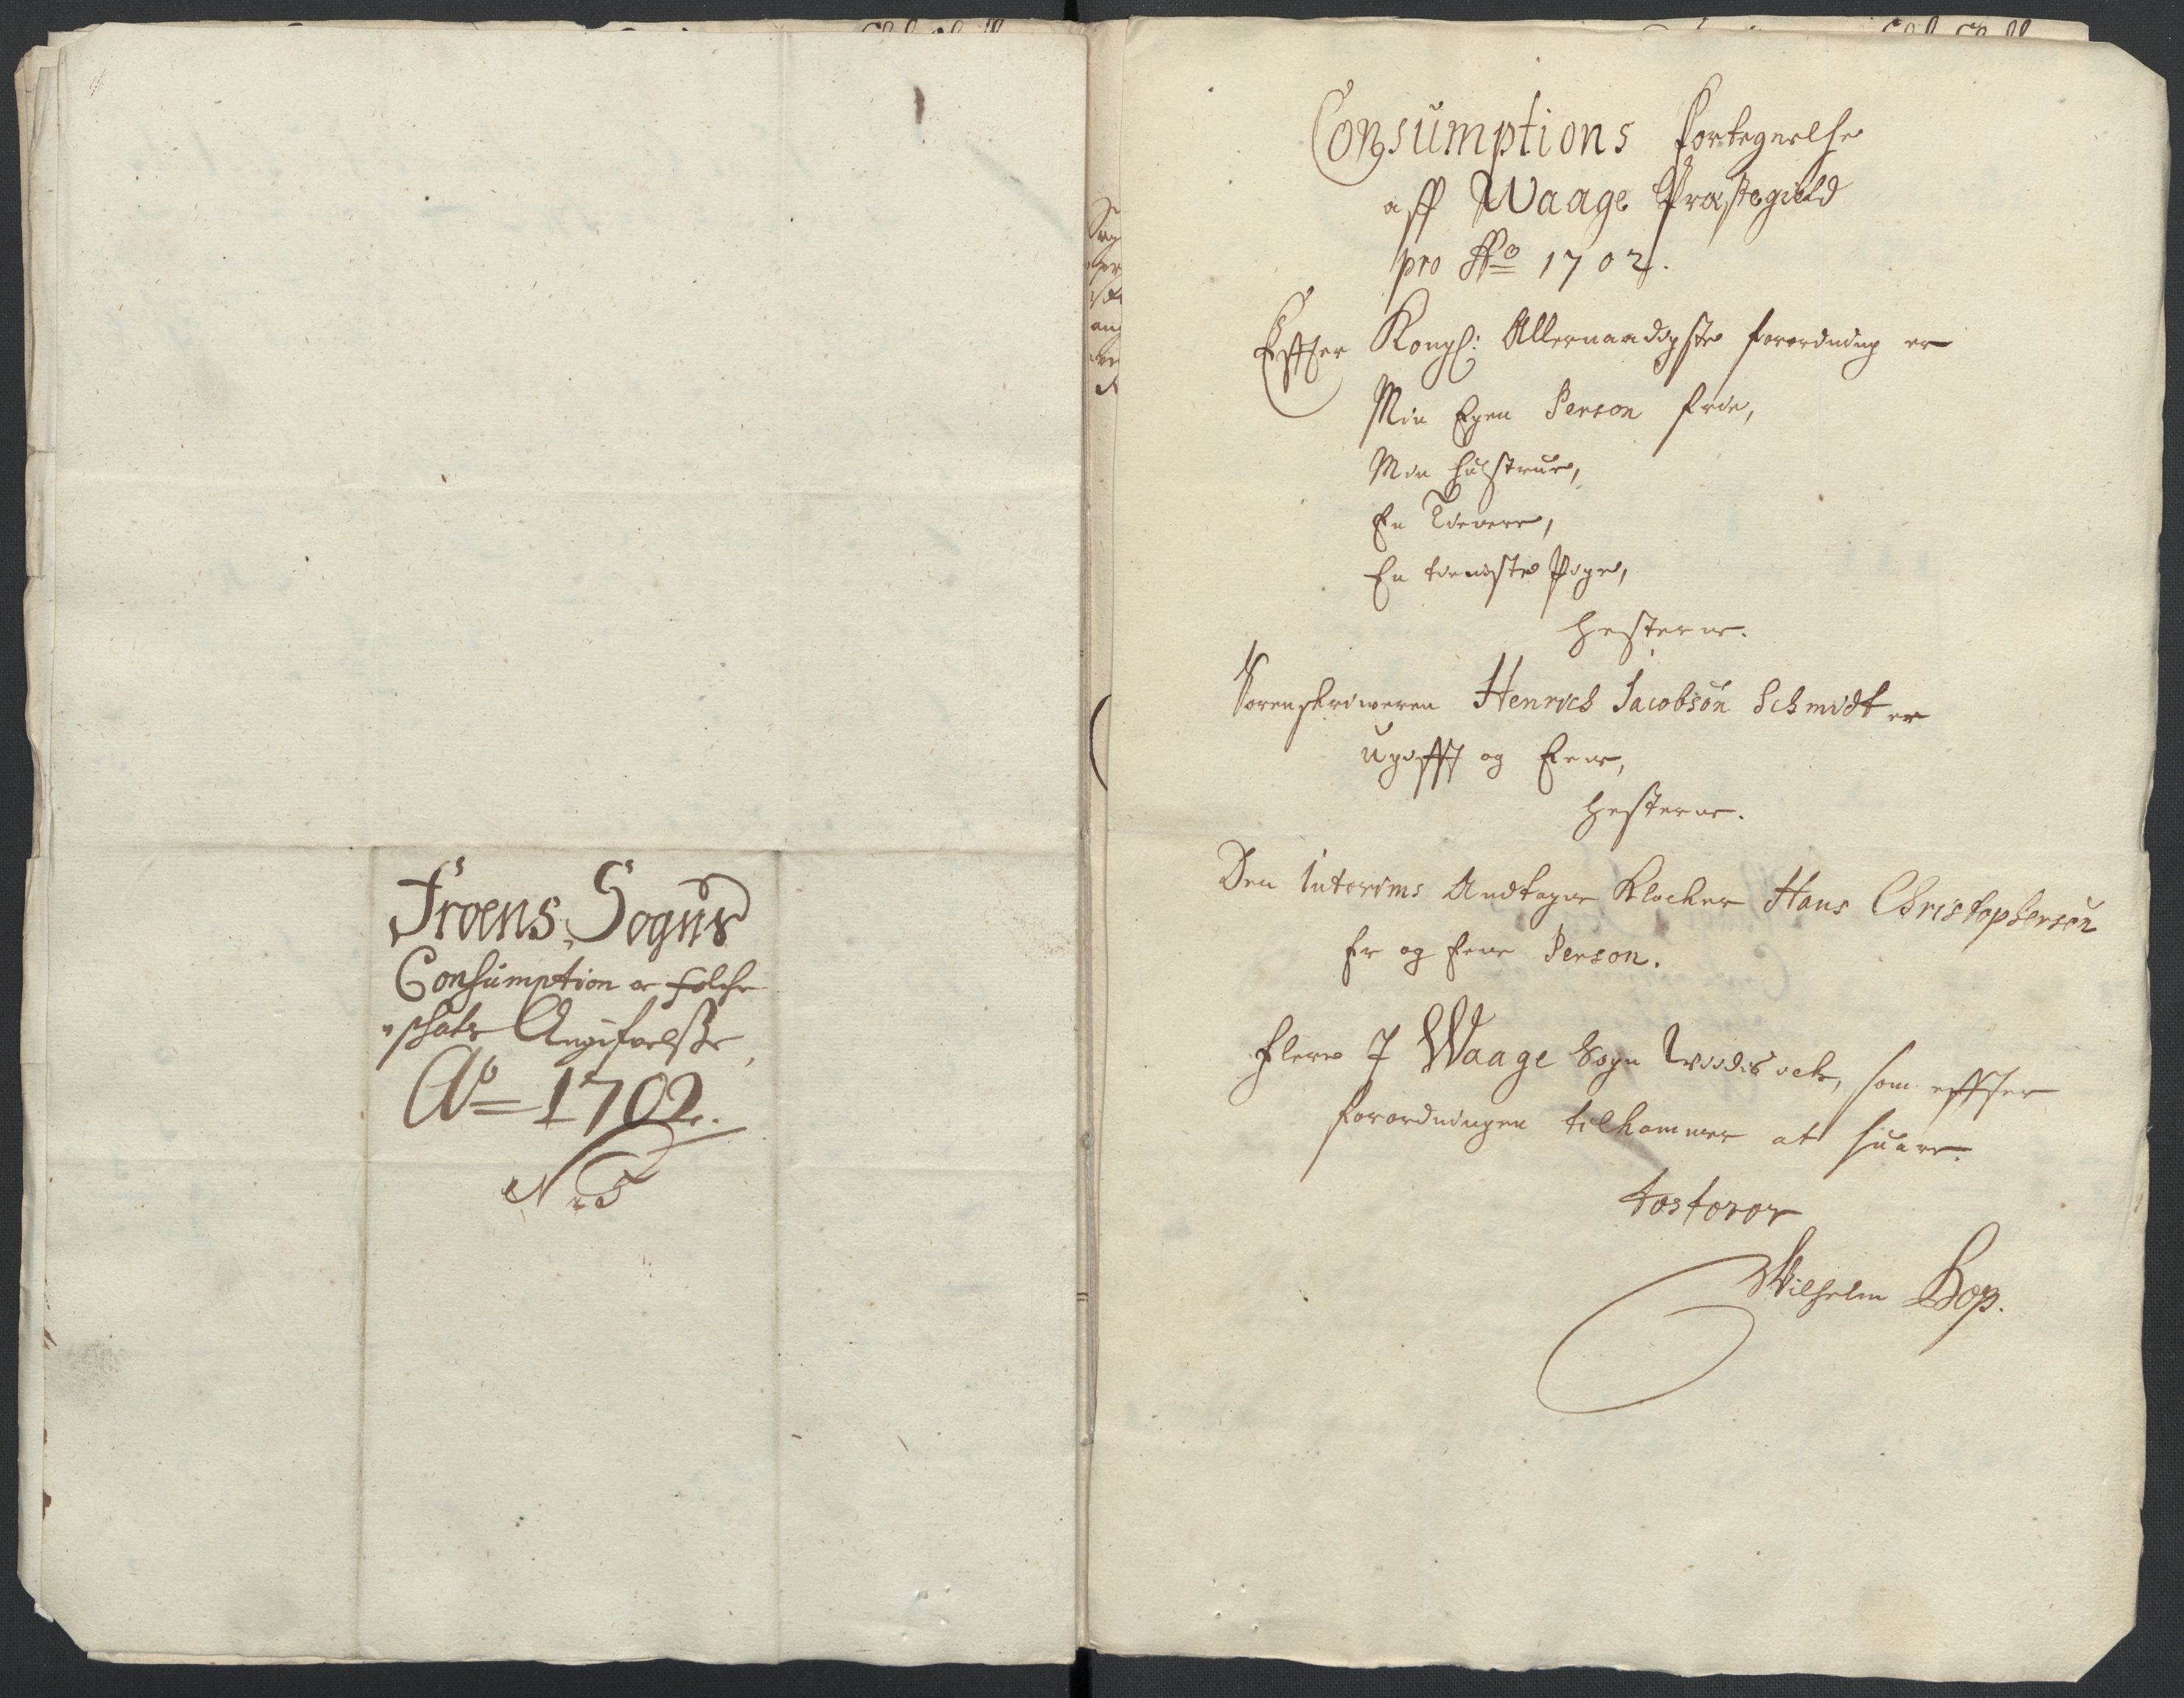 Froens Sogns
Consumption oc Folche
schatz Angifvelsse
Ao 1702.
No 5
Consumptions Fortegnelse
aff Waage Præstegield
pro Ao 1702.
Effter Kongl: Allernaadigste forordning er
Min Egen Person frie,
Min Hustrue,
En Tienere,
En tieniste Pige,
Hesterne.
Sorenskriweren Henrich Jacobsøn Schmidt er
ugifft og Eene,
Hesterne.
Den Interims Andtagne Klocker Hans Christophersøn
Er og Eene Person.
Flere I Waage Sogn icke, som effter
forordningen tilkommer at suare.
testerer
Wilhelm